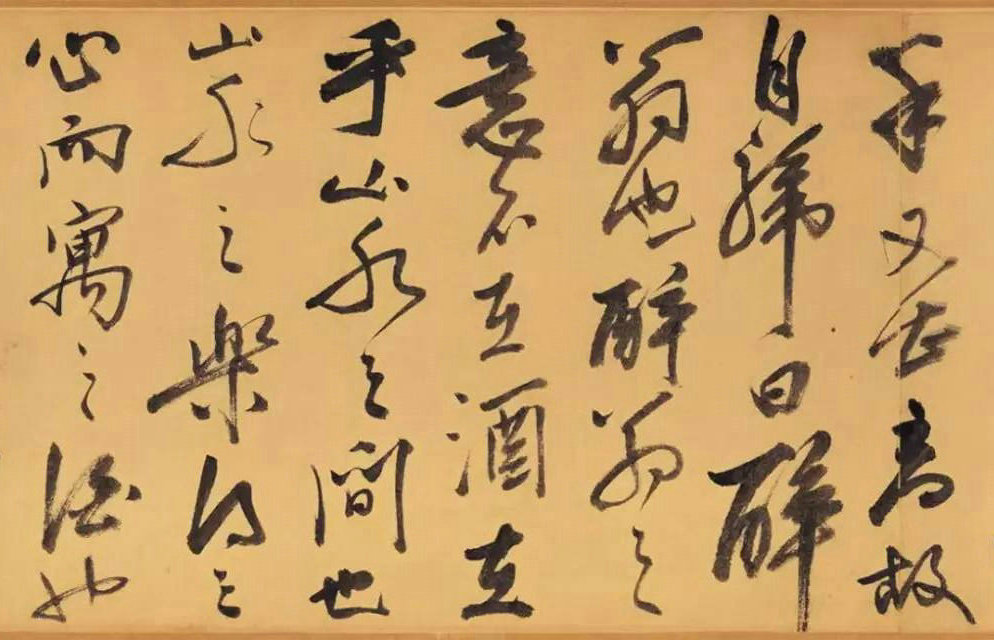 年又最高故
自號曰醉
翁也醉翁之
意不在酒在
乎山水之間也
山水之樂得之
心而寓之酒也